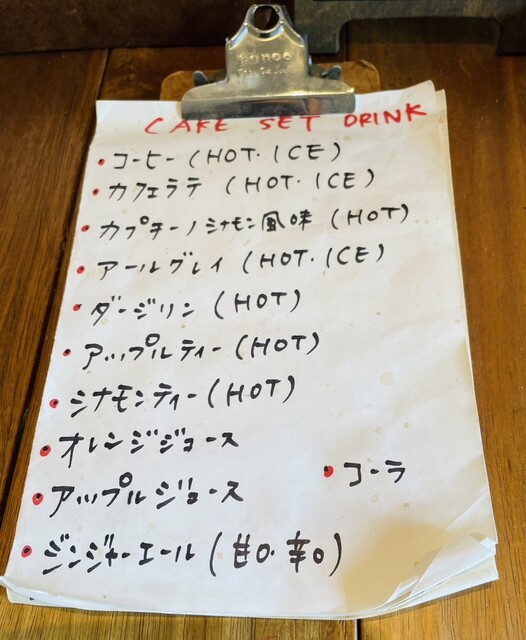 CAKE SET DRINK
コーヒー (HOT・ICE)
カフェラテ (HOT・ICE)
カプチーノシナモン風味 (HOT)
アールグレイ (HOT・ICE)
ダージリン (HOT)
アップルティー (HOT)
シナモンティー (HOT)
オレンジジュース
コーラ
アップルジュース
ジンジャーエール (甘口・辛口)